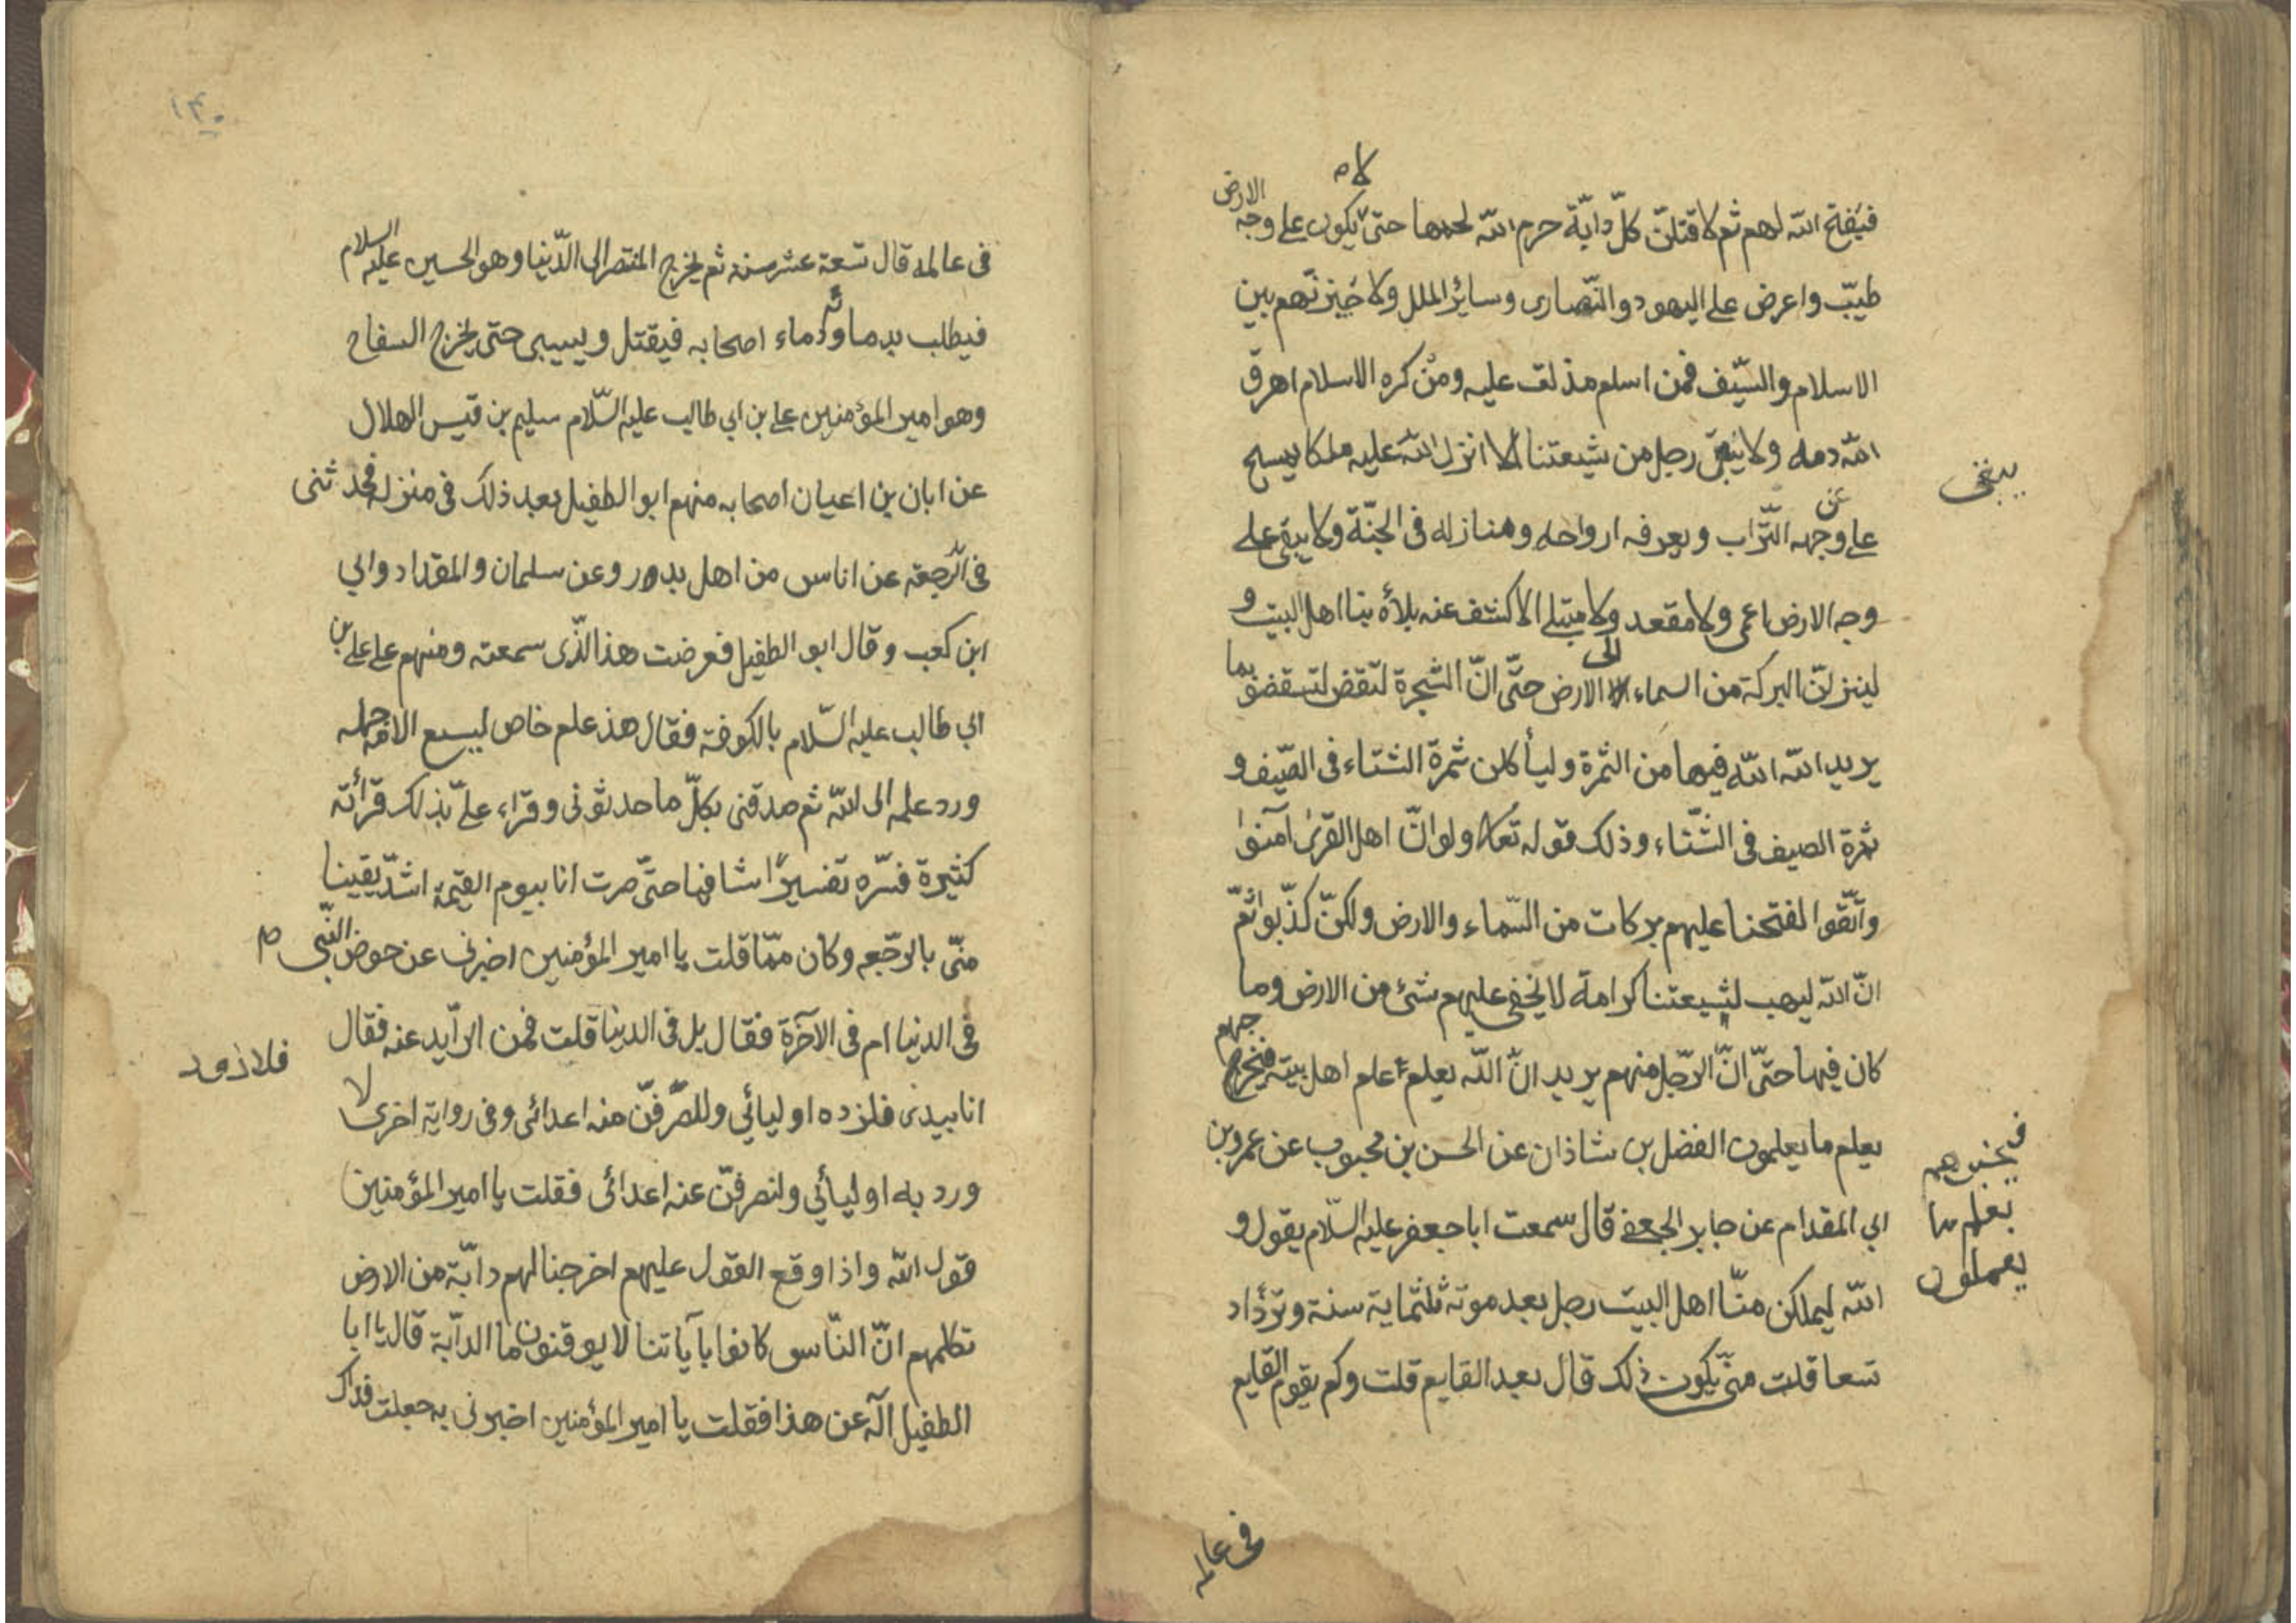 لا ه
الارض
فيفتح الله لهم ثم لا قتلنّ كلّ دابّة حرم الله لحمها حتى يكون على وجه
طيبّ واعرض على اليهود والنّصارى وسائر الملل ولا خيزنّهم بين
الاسلام والسّيف فمن اسلم مذلت عليه ومن كره الاسلام اهرق
الله دمه ولا يبقى رجل من شيعتنا الا انزل الله عليه ملكا يمسح
يبقى
على وجهه التّراب ويعرفه ارواحه ومنازله فى الجنّة ولا يبقى على
عن
وجه الارض اعمى ولا مقعد ولا مبتلى الا كشف عنه بلاؤه بنا اهل البيت و
لينزلنّ البركة من السماء الى الارض حتّى انّ الشّجرة لتقض لتسقضف بما
يريد الله الله فيها من الثمرة وليأكلن ثمرة الشتاء فى الصّيف و
ثمرة الصيف فى الشّتاء وذلك قوله تعالى ولو انّ اهل القرى آمنوا
واتّقوا لفتحنا عليهم بركات من السّماء والارض ولكنّ كذّبوا ثمّ
انّ الله ليهب لشيعتنا كرامة لا يخفى عليهم شئ من الارض وما
كان فيها حتّى انّ الرّجل منهم يريد انّ الله يعلم علم اهل بيته فيخرج
جهم
يعلم ما يعلمون الفضل بن شاذان عن الحسن بن محبوب عن عمرو بن
فيخبرهم
بعلم ما
يعملون
ابي المقدام عن جابر الجعفى قال سمعت ابا جعفر عليه السّلام يقول و
الله ليملكن منّا اهل البيت رجل بعد موته ثلثماية سنة وتزداد
تسعا قلت متى يكون ذلك قال بعد القايم قلت وكم يقوم القايم
فى عالمه
١٣٠
فى عالمه قال تسعة عشر سنه ثم يخرج المنتصر الى الدّنيا وهو الحسين عليه السلام
فيطلب بدمائه ودماء اصحابه فيقتل ويسبى حتى يخرج السفاح
وهو امير المؤمنين على بن ابي طالب عليه السّلام سليم بن قيس الهلال
عن ابان بن اعيان اصحابه منهم ابو الطفيل بعد ذلك فى منزله فحدثنى
فى الرّجعة عن اناس من اهل بدر وعن سلمان والمقداد وابي
ابن كعب وقال ابو الطفيل فعرضت هذا الذّى سمعته ومنهم على على بن
ابي طالب عليه السّلام بالكوفة فقال هذ علم خاص ليسع الامة جهله
ورد علمه الى الله ثم صدقنى بكلّ ما حدثونى وقراء علىّ بذلك قرأته
كثيرة فسّره تفسيرًا شافيا حتّى صرت انا بيوم القيمة اشدّ يقينا
منّى بالرجّعه وكان ممّا قلت يا امير المؤمنين اخبرنى عن حوض النّبى ص
فى الدنيا ام فى الآخرة فقال بل فى الدينا قلت فمن الرآيد عنه فقال
فلاذود
انا بيدى فلزده اوليائي وللصرّفنّ منه اعدائى وفى رواية اخرى لا
ورد به اوليأئي ولنصرفنّ عنه اعدائى فقلت يا امير المؤمنين
قول الله واذا وقع القول عليهم اخرجنا لهم دابّة من الارض
تكلمهم انّ النّاس كانوا بآياتنا لا يوقنون ما الدآبة قال يا ابا
الطفيل آله عن هذا فقلت يا امير المؤمنين اخبرنى به جعلت فداك